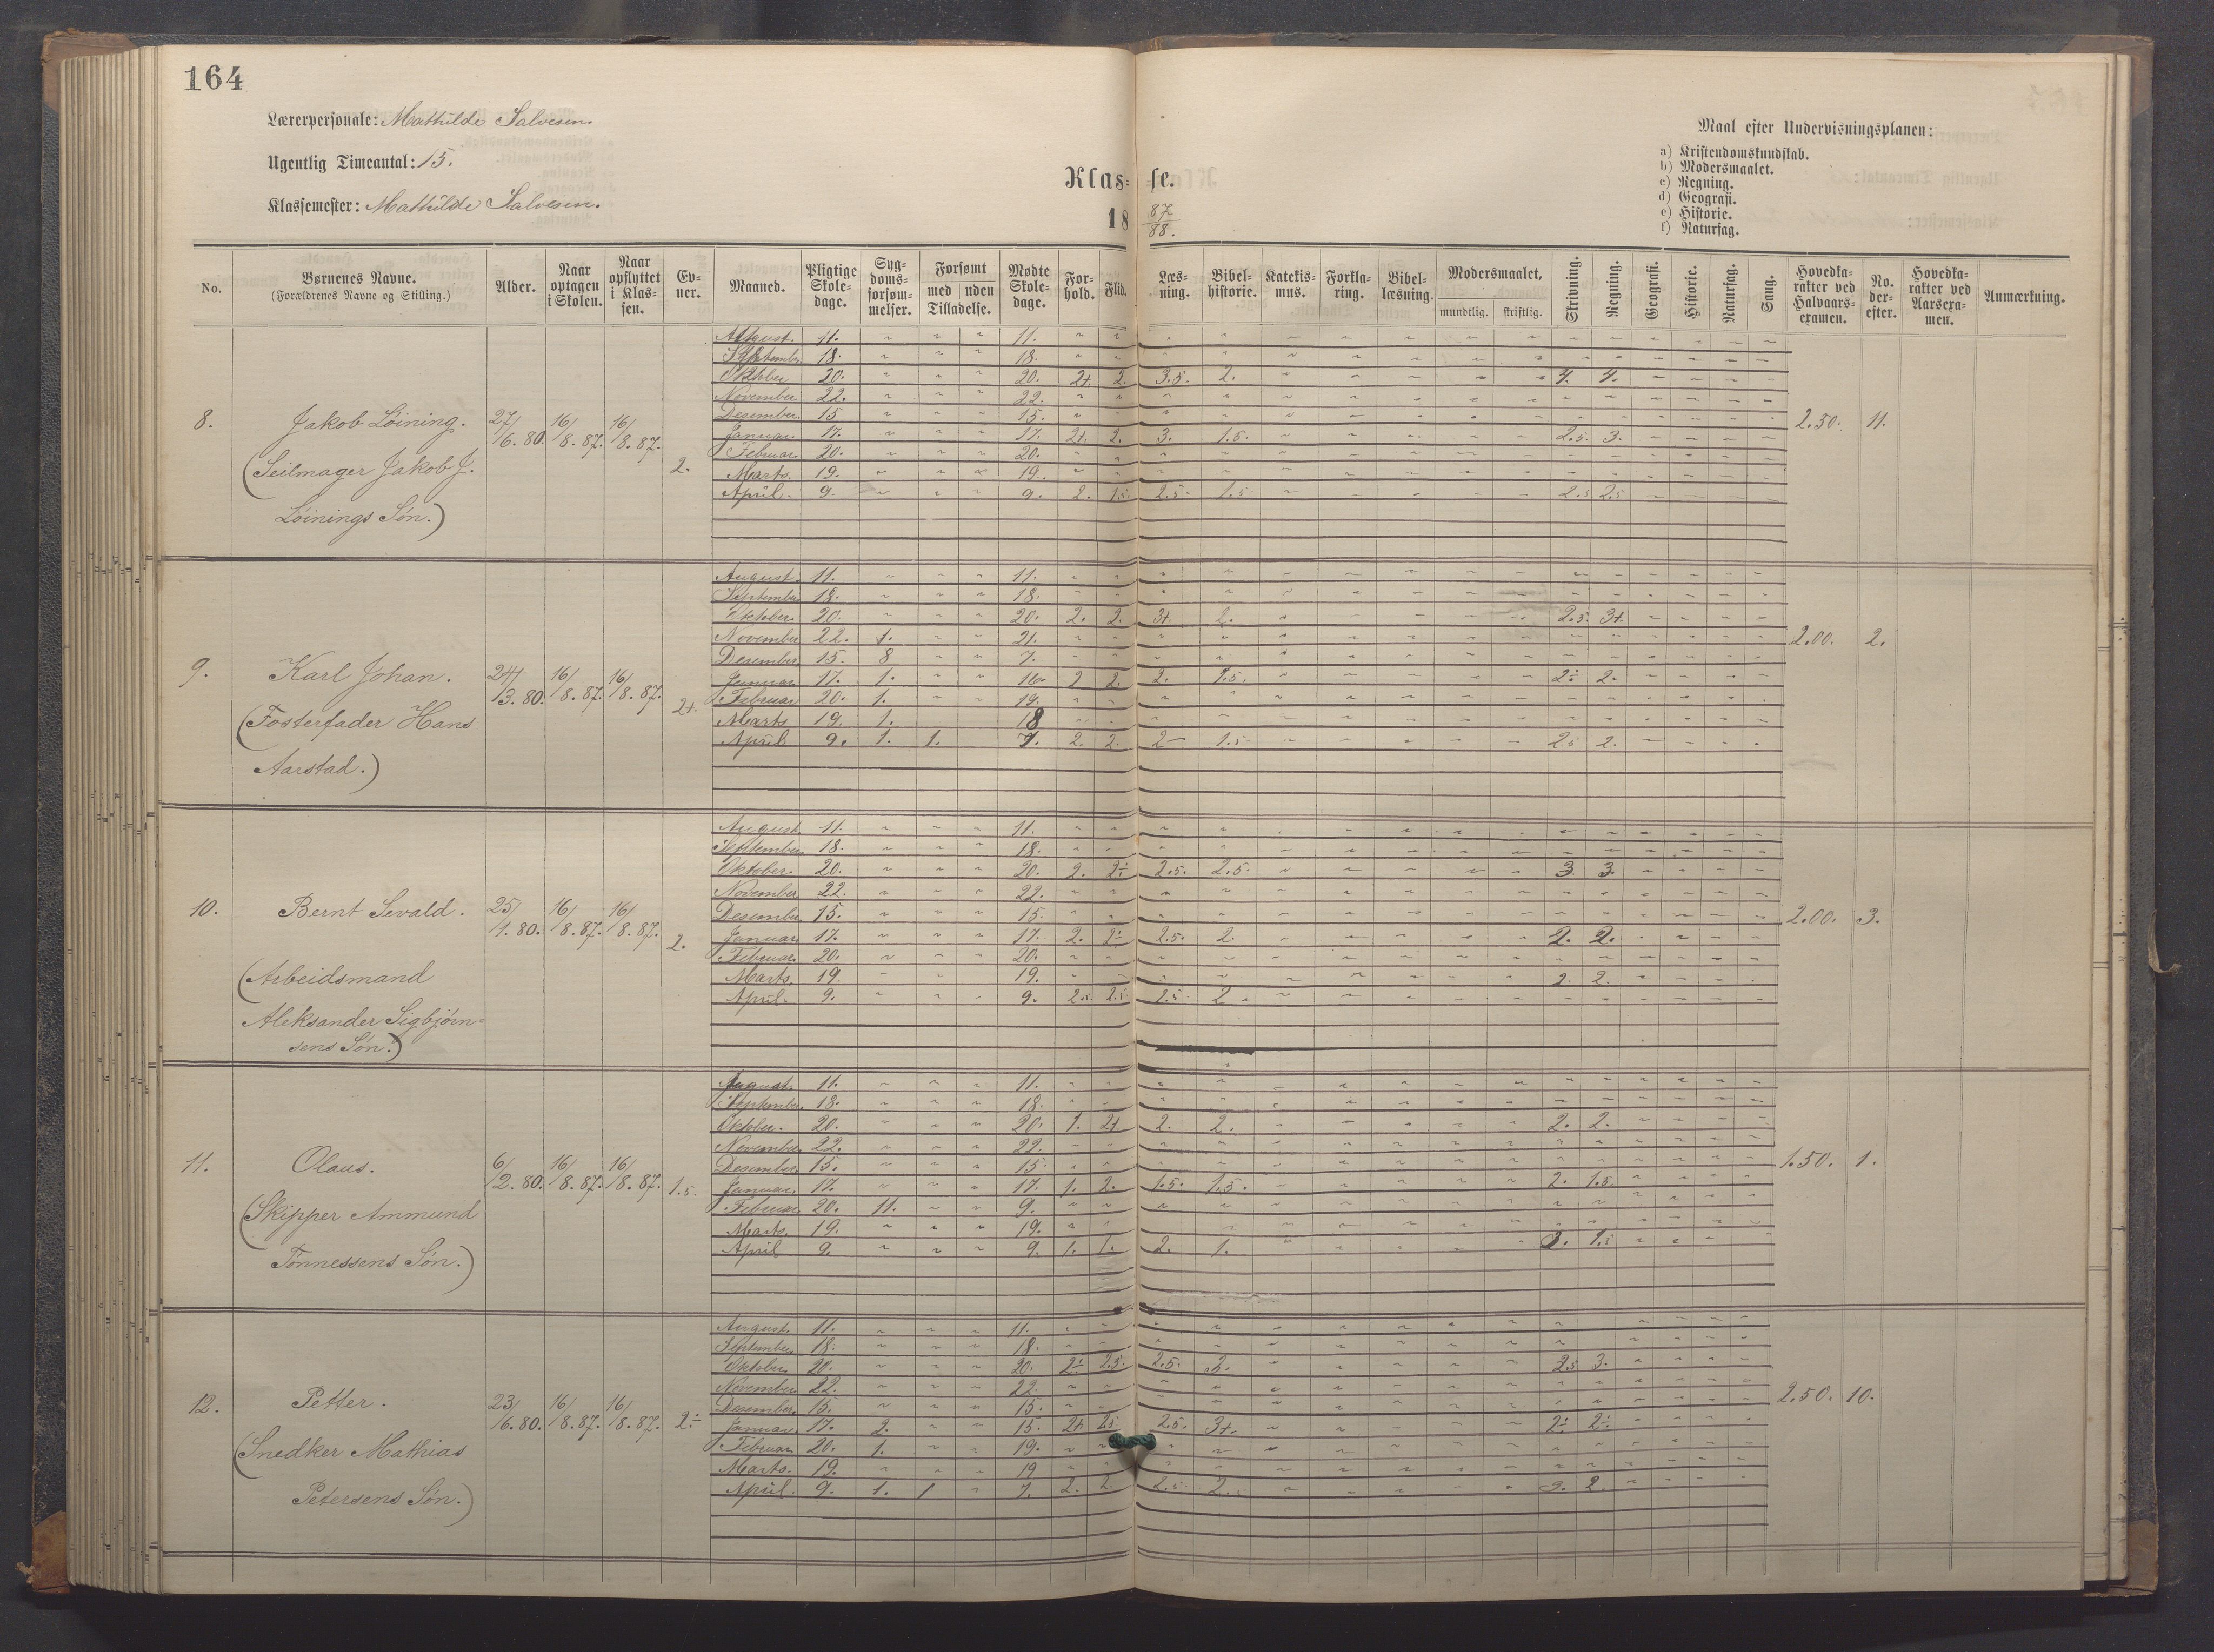 164
Lærerpersonale: Mathilde Salvesen.
Ugentlig Timeantal: 15.
Klassemester: Mathilde Salvesen.
Klasse.
18 87/88.
Maal efter Undervisningsplanen:
a) Kristendomskundskab.
b) Modersmaalet.
c) Regning.
d) Geografi.
e) Historie.
f) Naturfag.
No. | Børnenes Navne. (Forældrenes Navne og Stilling.) | Alder. | Naar optagen i Skolen. | Naar opflyttet i Klassen. | Evner. | Maaned. | Pligtige Skoledage. | Sygdomsforsømmelser. | Forsømt med / uden Tilladelse. | Mødte Skoledage. | Forhold. | Flid. | Læsning. | Bibelhistorie. | Katekismus. | Forklaring. | Bibellæsning. | Modersmaalet, mundtlig. / skriftlig. | Skrivning. | Regning. | Geografi. | Historie. | Naturfag. | Sang. | Hovedkarakter ved Halvaarsexamen. | No. derefter. | Hovedkarakter ved Aarsexamen. | Anmærkning.
8. Jakob Löining. 27/6.80. 16/8.87. 16/8.87. 2. 2.50. 11.
(Seilmager Jakob J.
Löinings Søn.)
August. 11. " " " 11.
September 18. " " " 18.
Oktober 20. " " " 20. 2+. 2. 3.5. 2. 4. 4.
November 22. " " " 22.
Desember 15 " " " 15.
Januar. 17. " " " 17. 2+. 2. 3. 1.5. 2.5. 3.
Februar 20. " " " 20.
Marts. 19. " " " 19.
April. 9. " " " 9. 2. 1.5. 2.5. 1.5 2.5 2.5
9. Karl Johan. 24/3.80. 16/8.87. 16/8.87. 2+. 2.00. 2.
(Fosterfader Hans
Aarstad.)
August. 11. " " " 11.
September 18. " " " 18.
Oktober. 20. " " " 20. 2. 2. 3+ 2. 2.5. 3+.
November 22. 1. " " 21.
Desember. 15. 8 " " 7.
Januar 17. 1. " " 16. 2 2. 2. 1.5. 2÷ 2.
Februar 20. 1. " " 19.
Marts 19. 1. 18
April 9. 1. 1. 7. 2. 2. 2 1.5 2.5 2.
10. Bernt Sevald. 25/1.80. 16/8.87. 16/8.87. 2. 2.00. 3.
(Arbeidsmand
Aleksander Sigbjørn-
sens Søn.)
August 11. " " " 11.
September. 18. " " " 18.
Oktober. 20. " " " 20. 2. 2÷ 2.5. 2.5. 3. 3.
November 22. " " " 22.
Desember 15. " " " 15.
Januar 17. " " " 17. 2. 2÷ 2.5. 2. 2. 2.
Februar. 20. " " " 20.
Marts. 19. " " 19. 2. 2.
April. 9. " " " 9. 2.5. 2.5 2.5. 2.
11. Olaus. 6/2.80. 16/8.87. 16/8.87. 1.5. 1.50. 1.
(Skipper Ammund
Tönnessens Søn.)
August. 11. " " " 11.
September. 18. " " " 18.
Oktober. 20. " " " 20. 1. 2+ 2. 2. 2. 2.
November 22. " " " 22.
Desember. 15. " " " 15.
Januar. 17. " " " 17. 1. 2. 1.5. 1.5. 2. 1.5.
Februar 20. 11. " " 9.
Marts. 19. " " " 19.
April 9. " " " 9. 1. 1. 2. 1. 3. 1.5
12. Petter. 23/6.80. 16/8.87. 16/8.87. 2÷ 2.50. 10.
(Snedker Mathias
Petersens Søn.)
August. 11. " " " 11.
September 18. " " " 18.
Oktober 20. " " " 20. 2÷ 2.5. 2.5. 3. 2.5 3.
November 22. " " " 22.
Desember. 15. " " " 15.
Januar 17. 2. " " 15. 2+ 2.5 2.5. 3+. 2÷ 2÷
Februar 20. 1. " " 19.
Marts. 19. " " " 19
April. 9. 1. 1 " 7. 2. 2. 2.5. 2. 2.